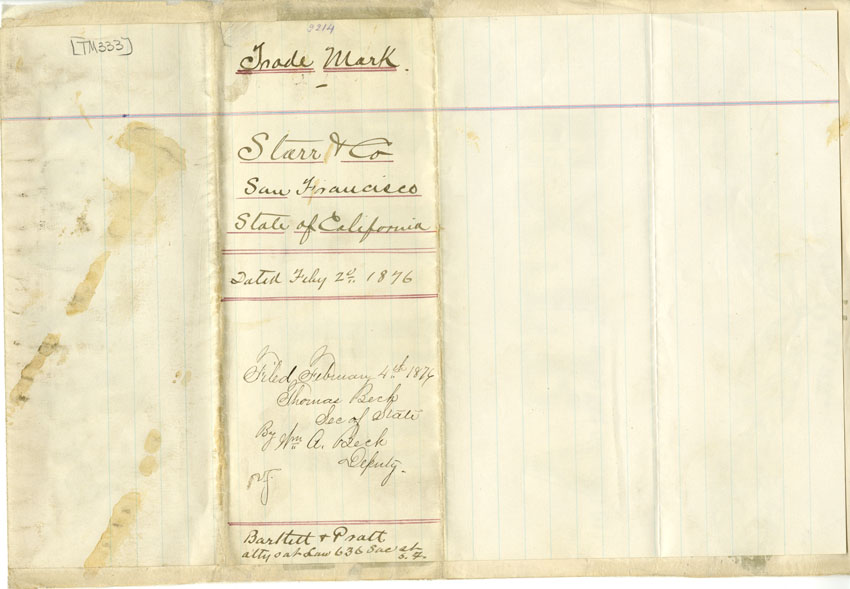 [TM333]
3214
Trade Mark.
Starr & Co
San Francisco
State of California
Dated Feby 2d. 1876
Filed, February 4th 1876
Thomas Beck
Sec of State
By Wm A. Beck
Deputy.
Bartlett & Pratt
attys at Law 636 Sac st
S. F.